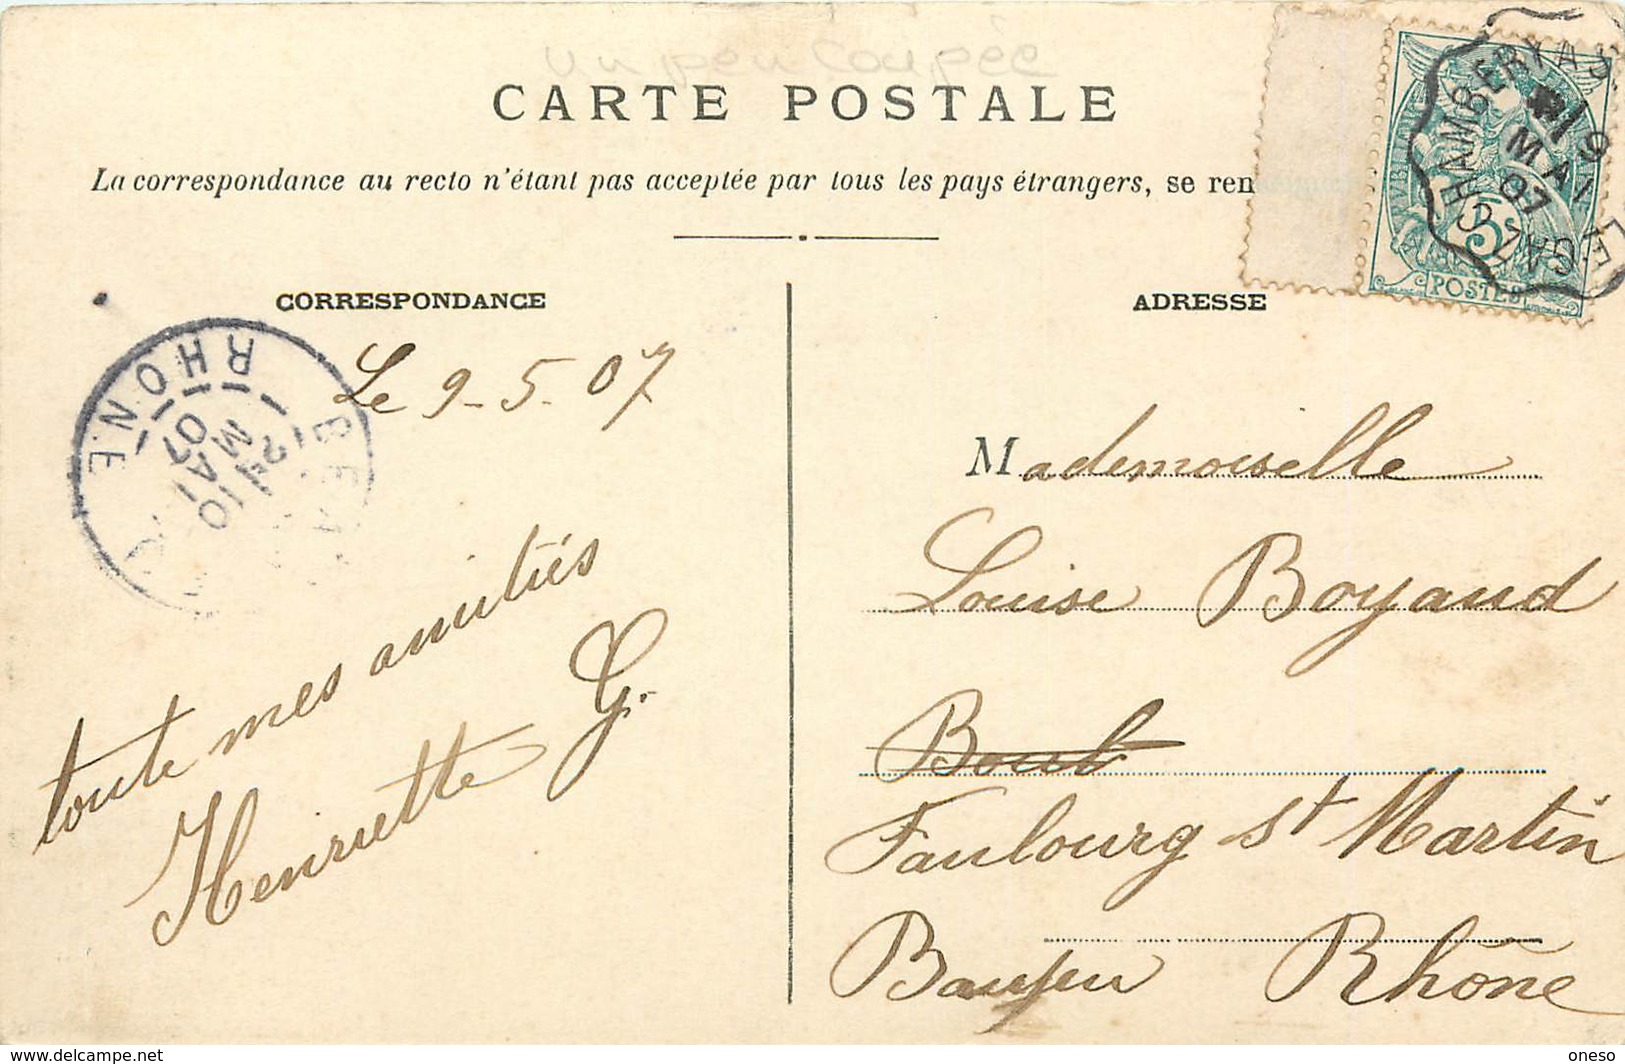 un peu coupée
CARTE POSTALE
La correspondance au recto n'étant pas acceptée par tous les pays étrangers, se ren
CORRESPONDANCE
Le 9-5-07
toute mes amitiés
Henriette G.
ADRESSE
Mademoiselle
Louise Boyaud
Faubourg St Martin
Beaujeu Rhône
5c
POSTES
19
MAI
07
RHONE
10
MAI
07
Delcampe.net
oneso